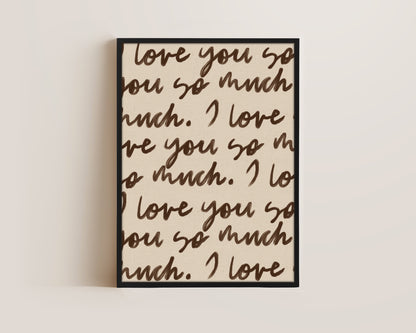 I love you so
you so much
much. I love
ve you so m
so much. I lo
I love you so
you so much
much. I love